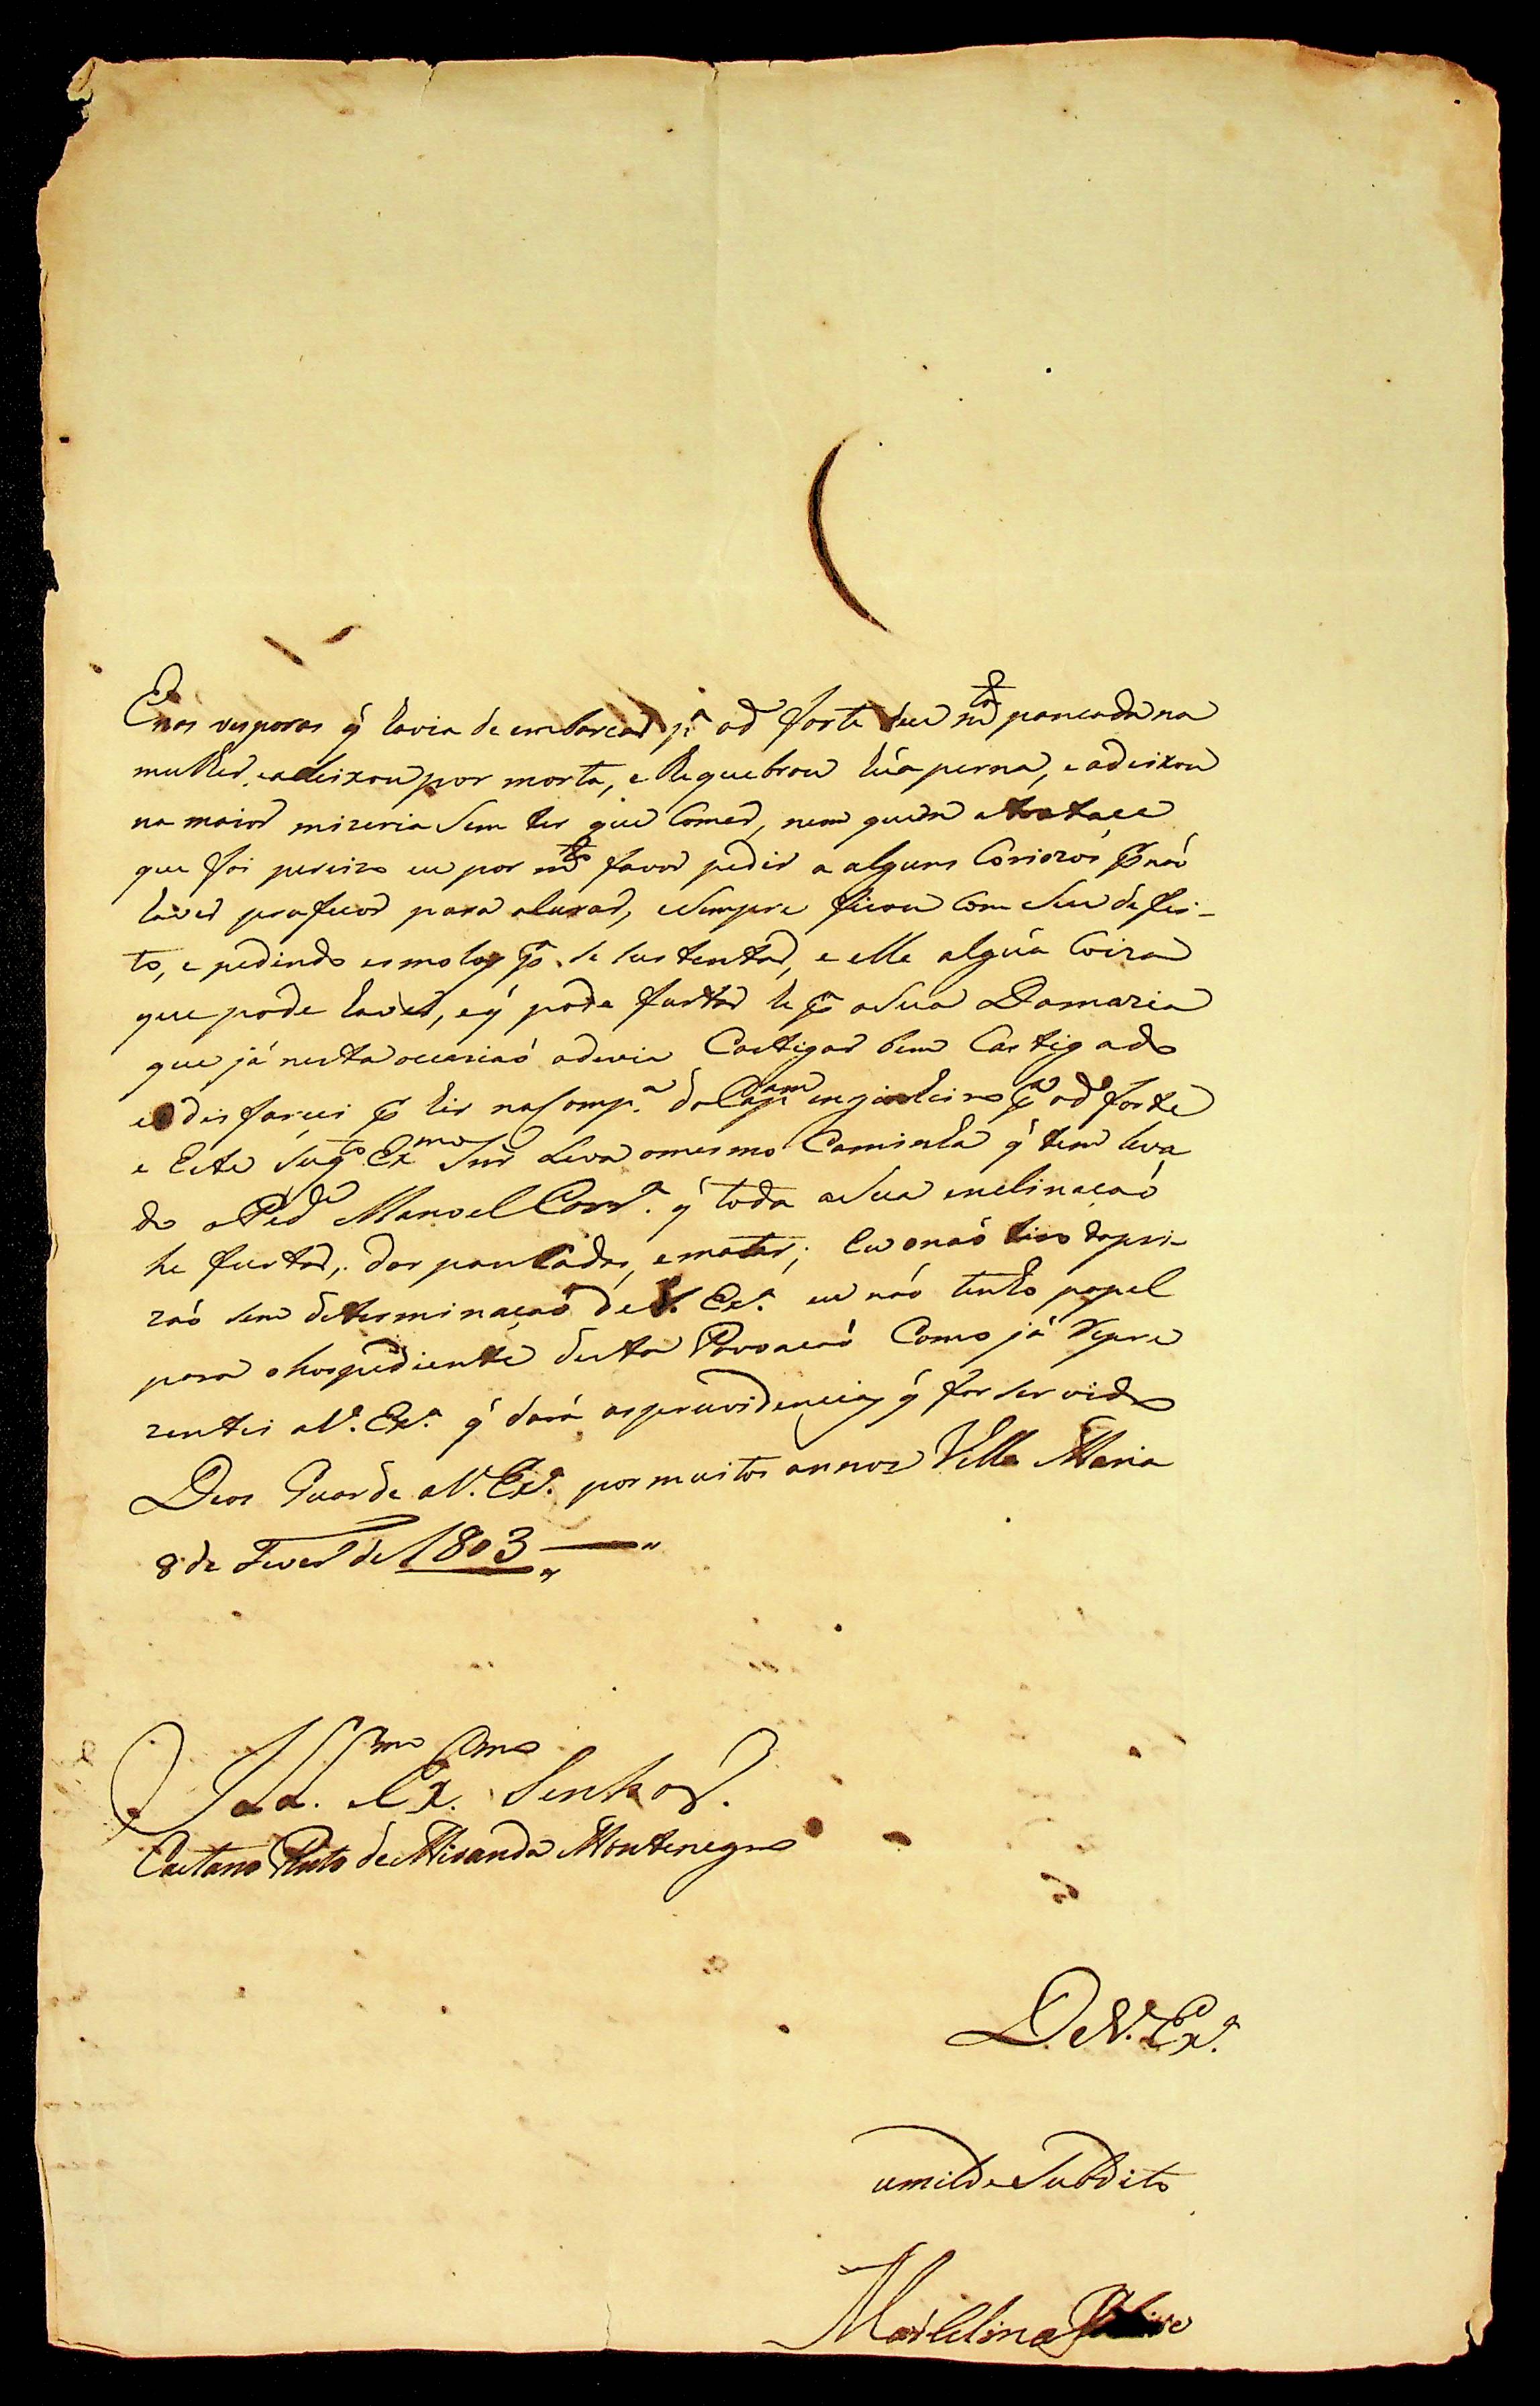 E nas vesporas q̃ havia de embarcar p.ª o d' forte deu m.ta pancada na
mulher, e a deixou por morta, e lhe quebrou hũa perna, e a deixou
na maior mizeria sem ter que comer, nem quem a tratace
que foi percizo eu por m.to favor pedir a alguns p.ª naó
haver para a curar, e sempre ficou com seu defei-
to, e pedindo esmolas p.ª se sustentar, e elle algũa coiza
que pode haver, e q̃ pode furtar he p.ª a sua Damazia
que já nesta occaziaó o devia Castigar bem Castigado
e o disfarcei p.ª hir na Comp.ª do Cap.am engenheiro p.ª o d' forte
e este Sug.to Ex.mo Snr Leva o mesmo Caminho q̃ tem leva
do o Manoel Corr.ª q̃ toda a sua enclinacaó
he furtar, dar pancadas, e matar; Eu o naó tiro da pri-
zaó sem determinaçaó de V. Ex.ª eu naó tenho papel
para o hospediente desta Povoacaó Como já Repre
zentei a V. Ex.ª q̃ dará as pruvidencias q̃ for servido
Deos Guarde a V. Ex.ª por muitos annos Villa Maria
8 de Fever.º de 1803
Ill.mo e Ex.mo Senhor.
Caetano Pinto de Miranda Montenegro
De V. Ex.ª
umilde Subdito